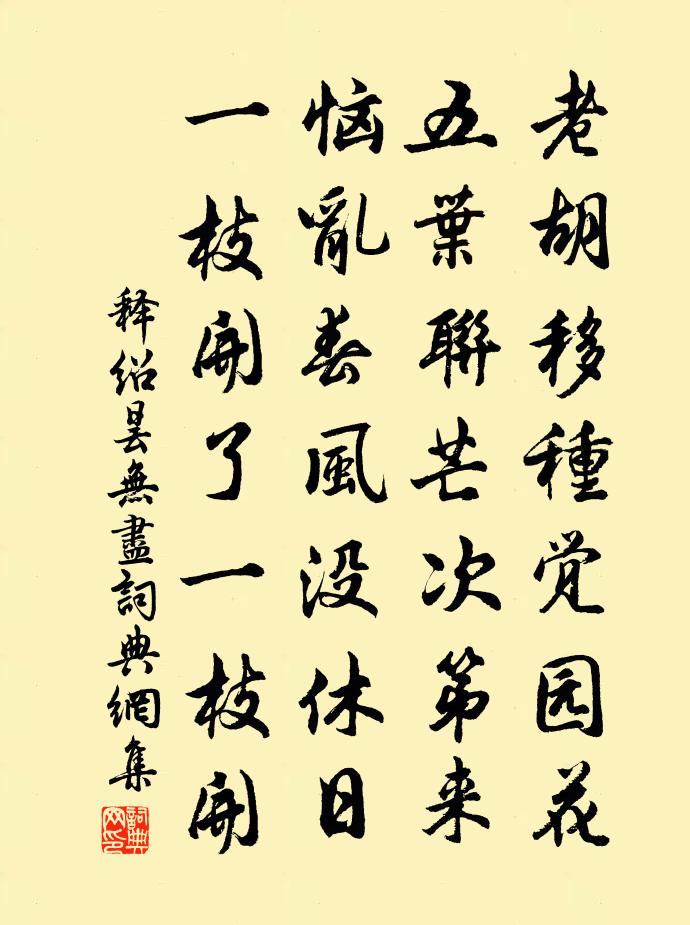 老胡移種觉园花
五葉聯芒次第来
恼亂春風没休日
一枝開了一枝開
释绍昙無盡詞典網集
詞典網印